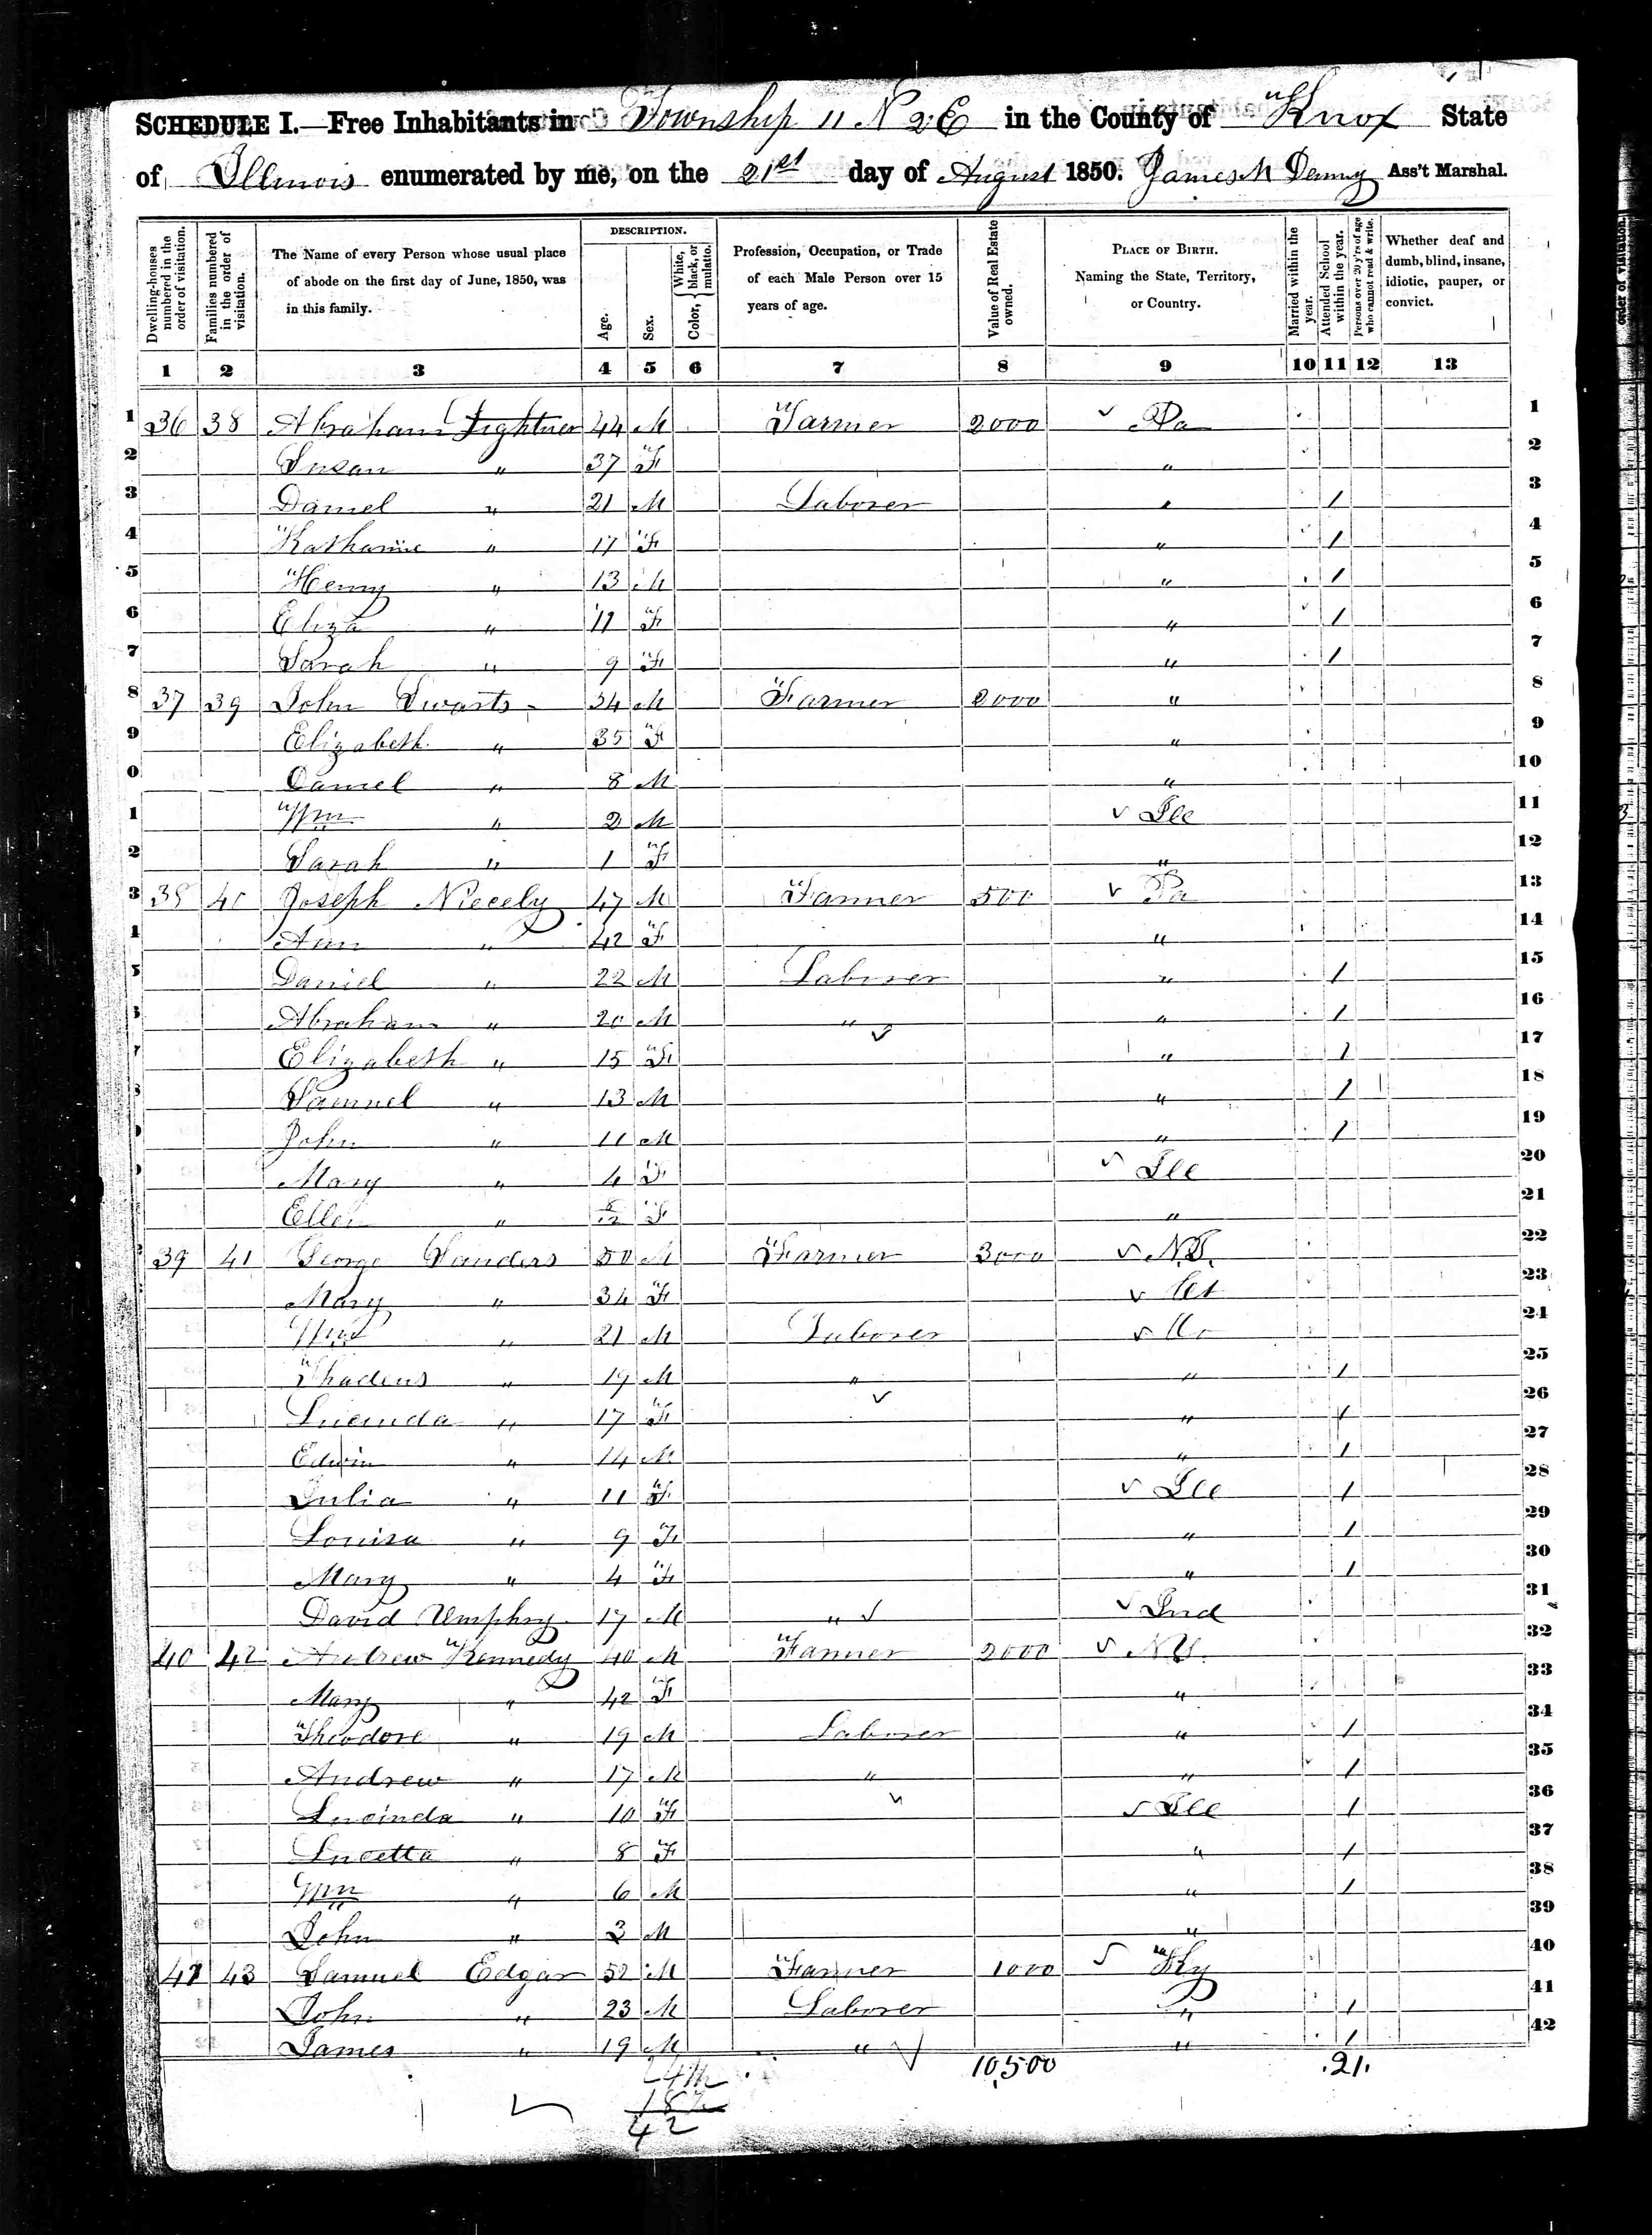 SCHEDULE I.—Free Inhabitants in Township 11 N 2 E in the County of Knox State
of Illinois enumerated by me, on the 21st day of August 1850. James M Denny Ass't Marshal.
Dwelling-houses numbered in the order of visitation.
Families numbered in the order of visitation.
The Name of every Person whose usual place of abode on the first day of June, 1850, was in this family.
DESCRIPTION.
Age.
Sex.
Color, White, black, or mulatto.
Profession, Occupation, or Trade of each Male Person over 15 years of age.
Value of Real Estate owned.
PLACE OF BIRTH. Naming the State, Territory, or Country.
Married within the year.
Attended School within the year.
Persons over 20 y'rs of age who cannot read & write.
Whether deaf and dumb, blind, insane, idiotic, pauper, or convict.
1 2 3 4 5 6 7 8 9 10 11 12 13
1 36 38 Abraham Lightner 44 M Farmer 2000 Pa 1
2 Susan " 37 F " 2
3 Daniel " 21 M Laborer " 1 3
4 Katharine " 17 F " 1 4
5 Henry " 13 M " 1 5
6 Eliza " 11 F " 1 6
7 Sarah " 9 F " 1 7
8 37 39 John Swarts 34 M Farmer 2000 " 8
9 Elizabeth " 35 F " 9
0 Daniel " 8 M " 10
1 Wm " 2 M Ill 11
2 Sarah " 1 F " 12
3 38 40 Joseph Niecely 47 M Farmer 500 Pa 13
Ann " 42 F " 14
5 Daniel " 22 M Laborer " 1 15
Abraham " 20 M " " 1 16
Elizabeth " 15 F " 1 17
Samuel " 13 M " 1 18
John " 11 M " 1 19
Mary " 4 F Ill 20
Ellen " 8/12 F " 21
39 41 George Sanders 50 M Farmer 3000 22
Mary " 34 F Ct 23
Wm " 21 M Laborer 24
Thadeus " 19 M " " 1 25
Lucinda " 17 F " 1 26
Edwin " 14 M " 1 27
Julia " 11 F Ill 1 28
Louisa " 9 F " 1 29
Mary " 4 F " 1 30
David Umphry 17 M " Ind 31
40 42 Andrew Kennedy 40 M Farmer 2000 N Y. 32
Mary " 42 F " 33
Theodore " 19 M Laborer " 1 34
Andrew " 17 M " " 1 35
Lucinda " 10 F Ill 1 36
Lucetta " 8 F " 1 37
Wm " 6 M " 1 38
John " 3 M " 39
41 43 Samuel Edgar 52 M Farmer 1000 Ky 40
John " 23 M Laborer " 1 41
James " 19 M " " 1 42
24M 10,500 .21.
18F
42